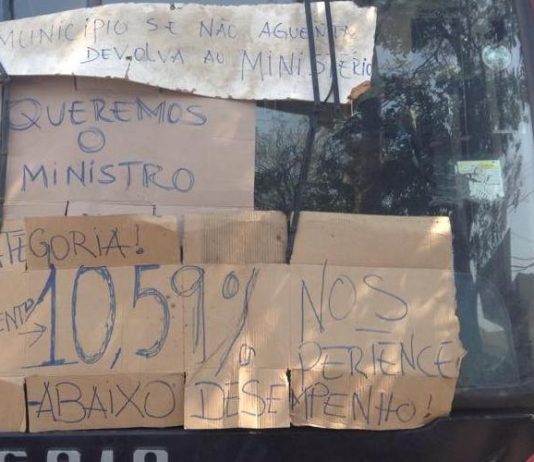 MUNICÍPIO SE NÃO AGUENTA
DEVOLVA AO MINISTÉRIO
QUEREMOS
O
MINISTRO
ATEGORIA!
ENTO → 10,59% NOS
PERTENCE
ABAIXO DESEMPENHO!